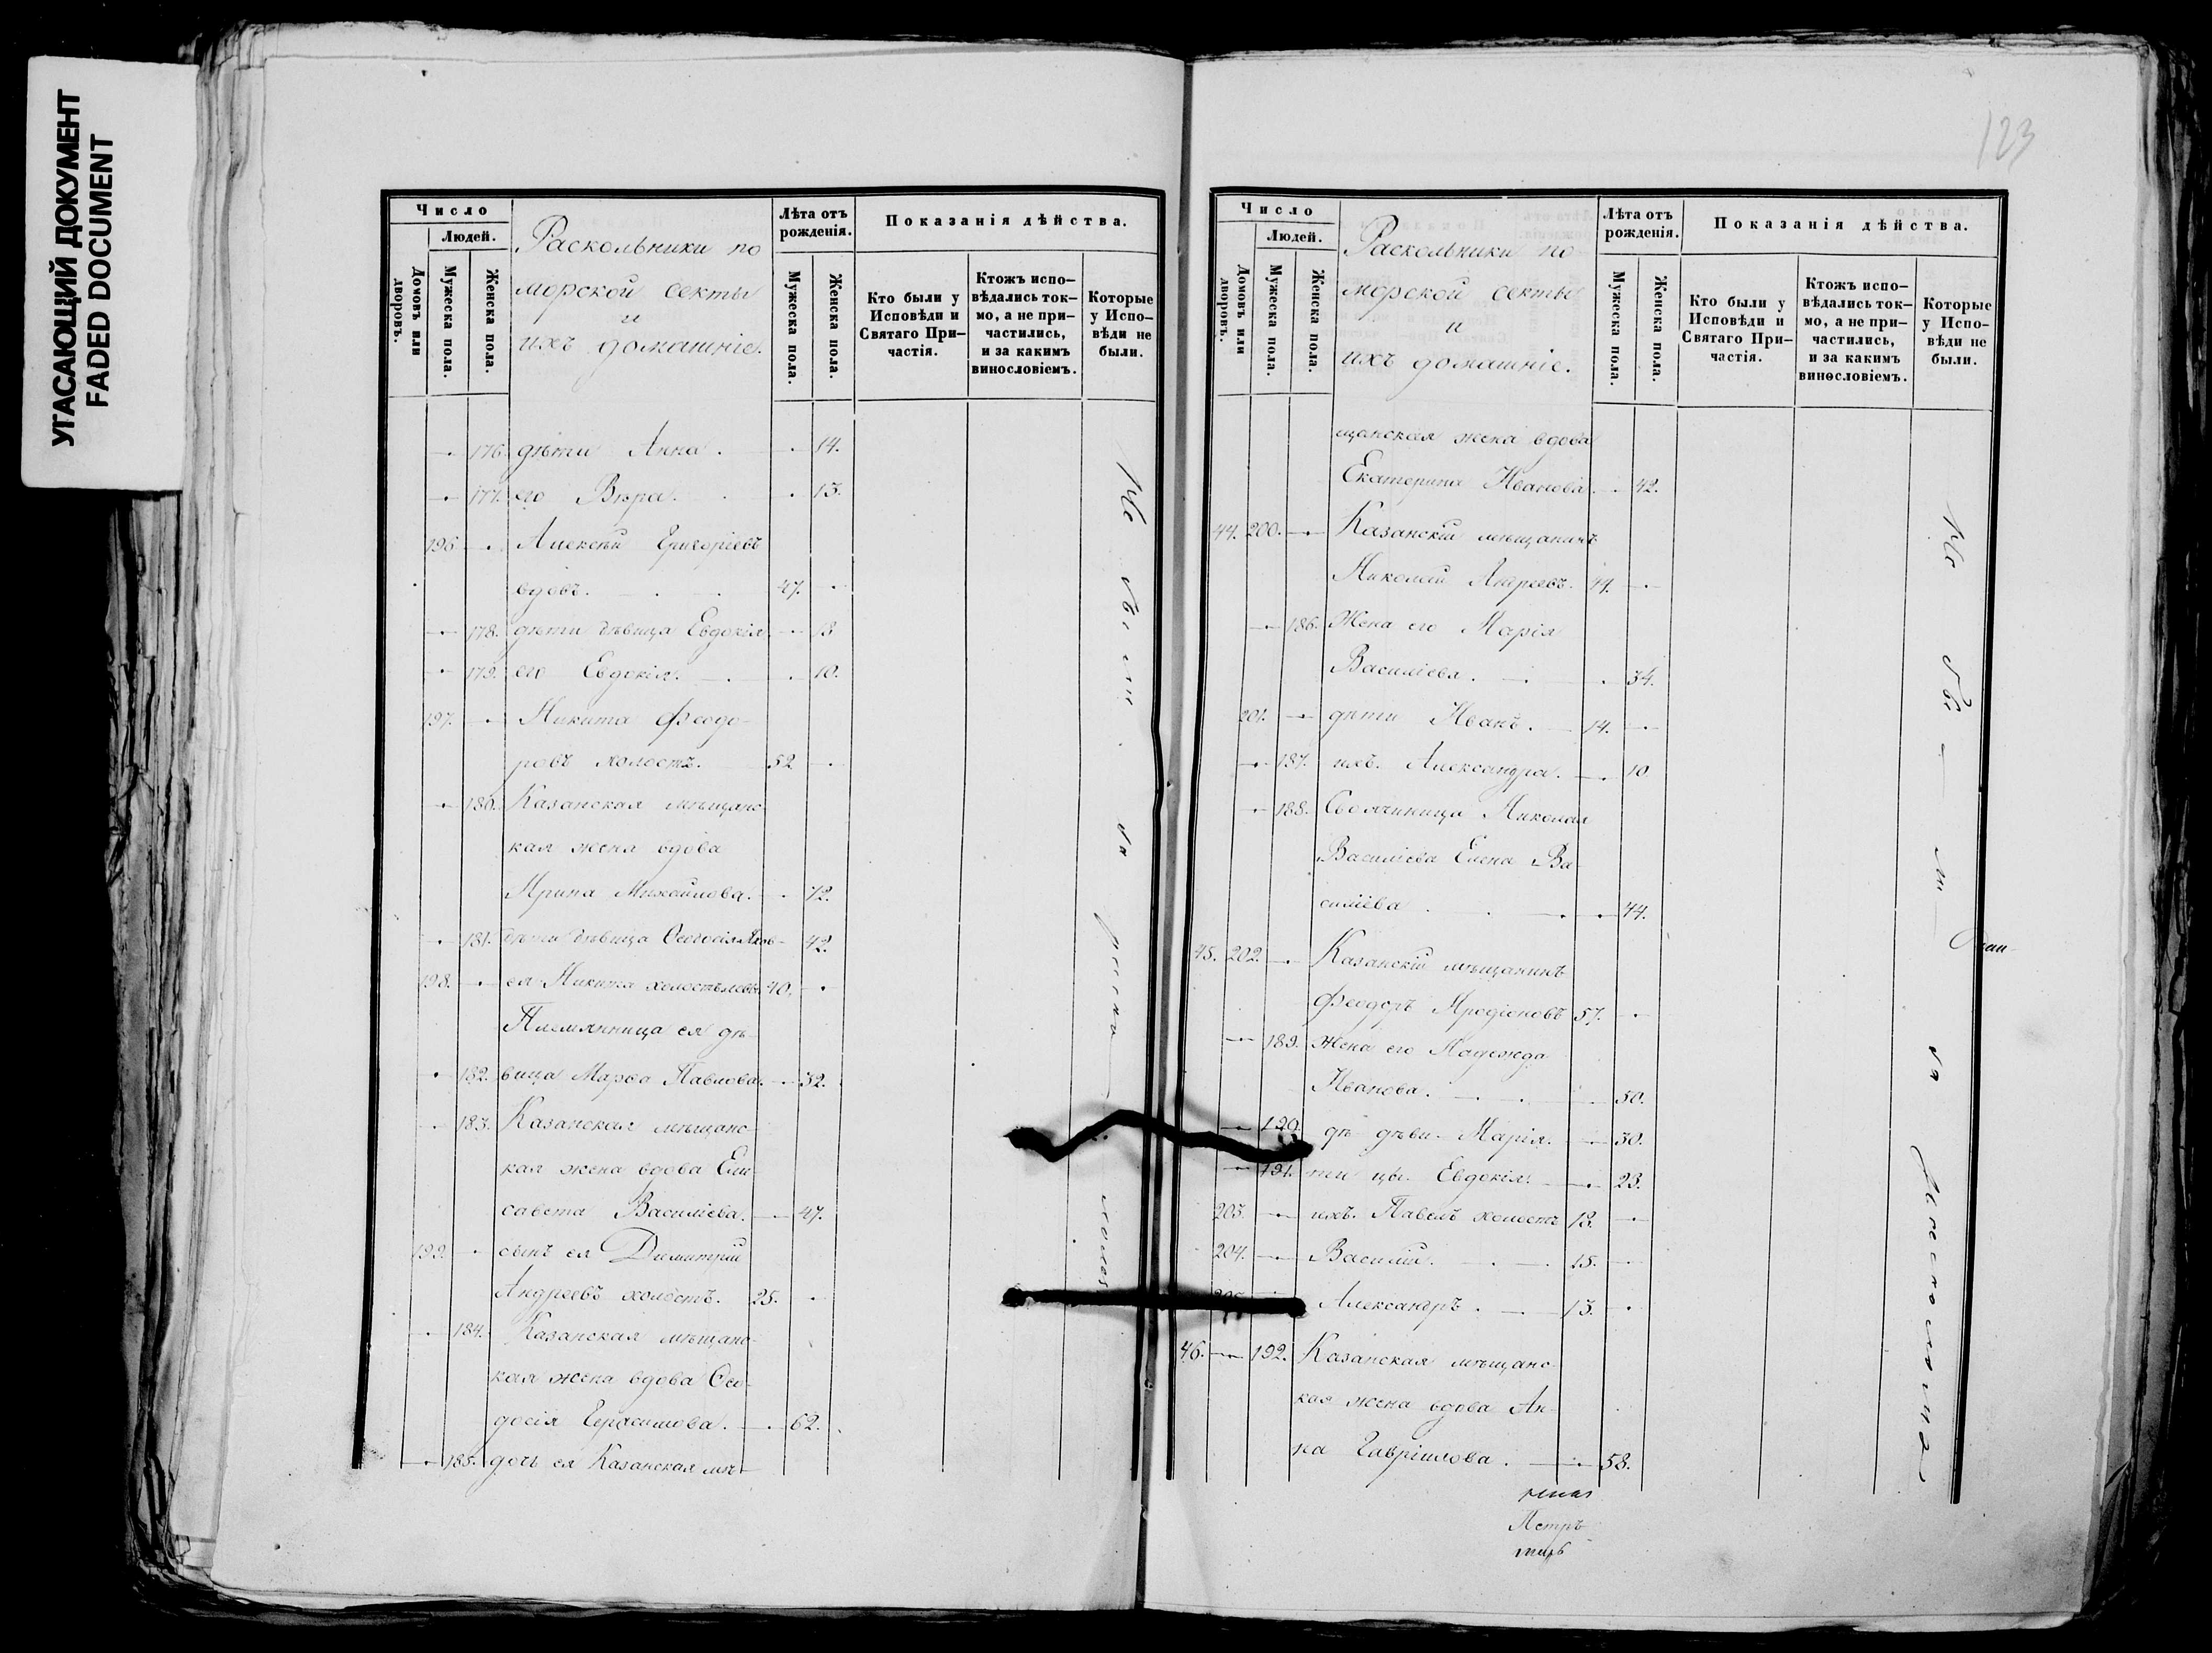 УГАСАЮЩИЙ ДОКУМЕНТ
FADED DOCUMENT
Число
Людей.
Домовъ или дворовъ.
Мужеска пола.
Женска пола.
Раскольники по
морской секты
и
ихъ домашніе.
Лѣта отъ рожденія.
Мужеска пола.
Женска пола.
Показанія дѣйства.
Кто были у Исповѣди и Святаго При-
частія.
Ктожъ испо-
вѣдались ток-
мо, а не при-
частились,
и за какимъ
винословіемъ.
Которые
у Испо-
вѣди не
были.
176. дѣти Анна. 14.
177. его Вѣра. 13.
196 Алексѣй Григоріевъ
вдовъ. 47.
178. дѣти дѣвица Евдокія. 18
179. его Евдокія. 10.
197. Никита Феодо-
ровъ холостъ. 52
180. Казанская мѣщанс-
кая жена вдова
Ирина Михайлова. 72.
181. дѣти дѣвица Ѳеодосія 42.
198. ея Никита холостъ 40.
Племянница ея дѣ-
182. вица Марѳа Павлова. 32.
183. Казанская мѣщанс-
кая жена вдова Ели-
савета Василіева. 47.
199. сынъ ея Димитрій
Андреевъ холостъ. 25.
184. Казанская мѣщанс-
кая жена вдова Ѳео-
досія Герасимова. 62.
185. дочь ея Казанская мѣ-
Не были
123
Число
Людей.
Домовъ или дворовъ.
Мужеска пола.
Женска пола.
Раскольники по
морской секты
и
ихъ домашніе.
Лѣта отъ
рожденія.
Мужеска пола.
Женска пола.
Показанія дѣйства.
Кто были у
Исповѣди и
Святаго При-
частія.
Ктожъ испо-
вѣдались ток-
мо, а не при-
частились,
и за какимъ
винословіемъ.
Которые
у Испо-
вѣди не
были.
щанская жена вдова
Екатерина Иванова. 42.
44. 200. Казанскій мѣщанинъ
Николай Андреевъ. 44.
186. Жена его Марія
Василіева. 34.
201. дѣти Иванъ. 14.
187. ихъ. Александра. 10
188. Своячиница Николая
Василіева Елена Ва-
силіева 44.
45. 202. Казанскій мѣщанинъ
Феодоръ Иродіоновъ 57.
189. Жена его Надежда
Иванова. 50.
190. дѣ- дѣви- Марія. 30.
191. ти цы. Евдокія. 23.
203. ихъ. Павелъ холостъ 18.
204. Василій. 15.
205. Александръ. 13.
46. 192. Казанская мѣщанс-
кая жена вдова Ан-
на Гавріилова. 58.
Не были за расколомъ
Петръ